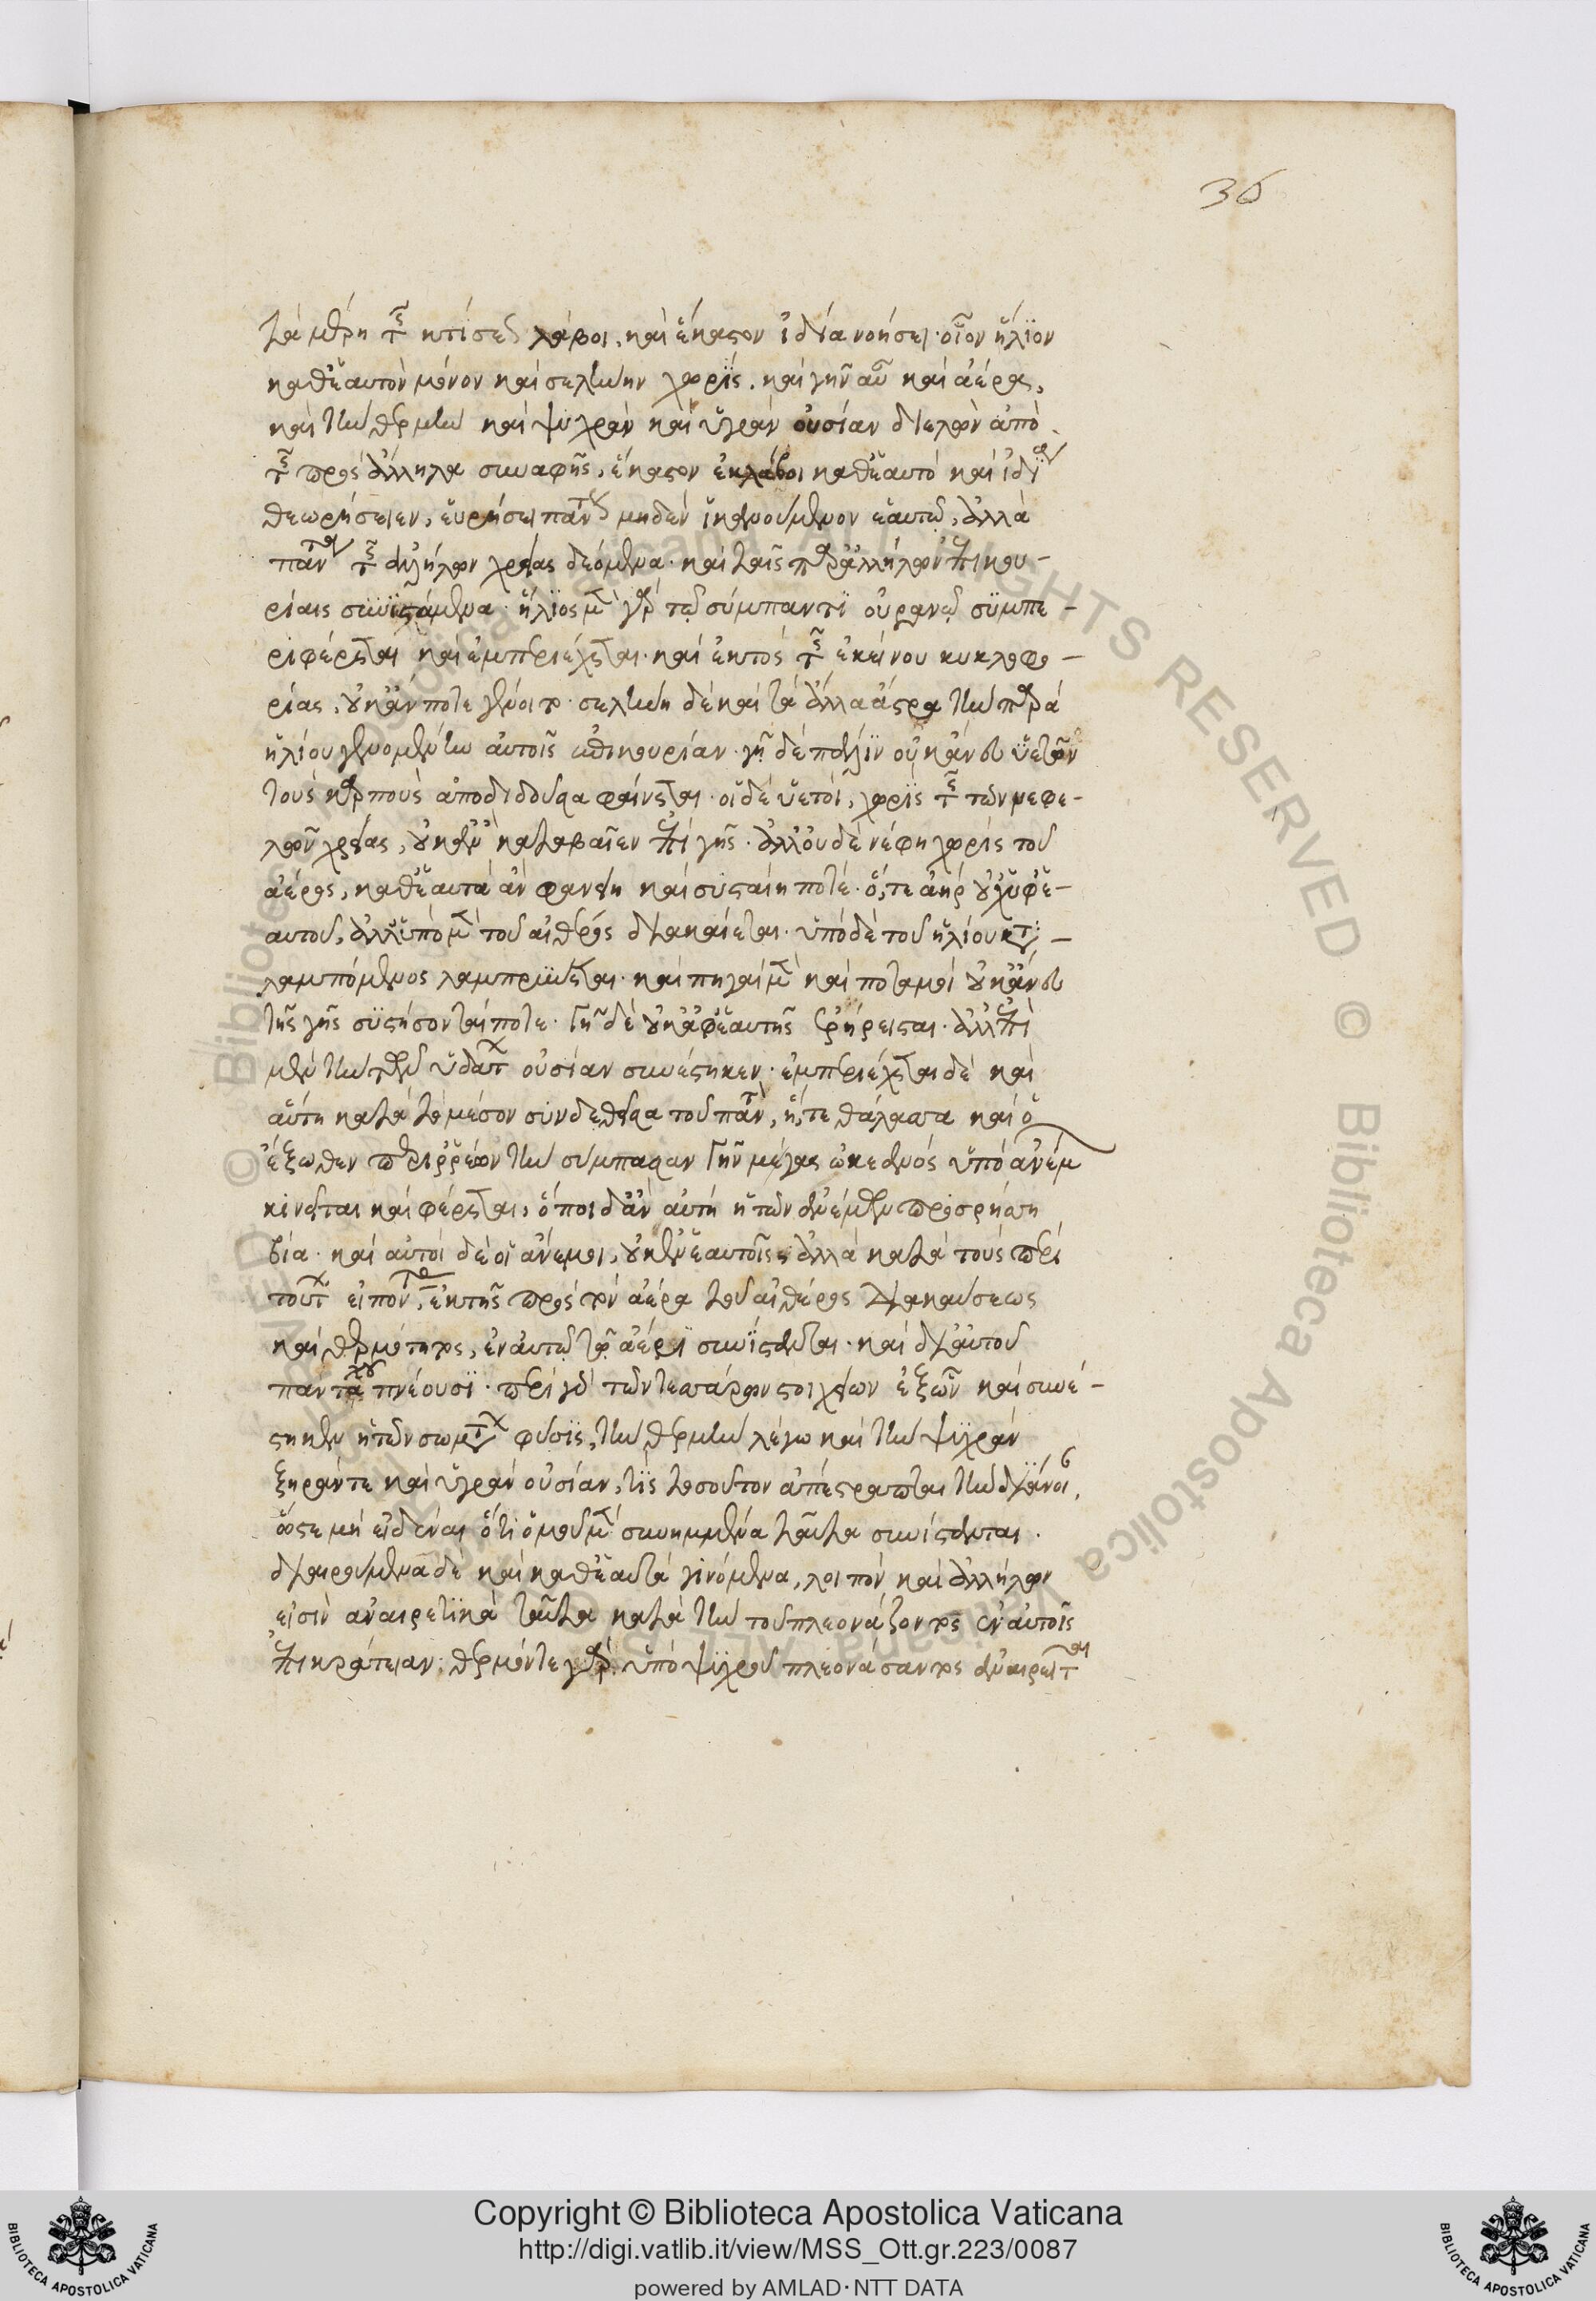 36
τὰ μέρη τῆς κτίσεως λάβοι, καὶ ἕκαστον ἰδίᾳ νοήσει· οἷον ἥλιον
καθ' ἑαυτὸν μόνον καὶ σελήνην χωρίς, καὶ γῆν αὖ καὶ ἀέρα,
καὶ τὴν θερμὴν καὶ ψυχρὰν καὶ ὑγρὰν οὐσίαν διελὼν ἀπὸ
τῆς πρὸς ἄλληλα συναφῆς, ἕκαστον ἐκλάβοι καθ' ἑαυτὸ καὶ ἰδίᾳ
θεωρήσειεν, εὑρήσει πάντως μηδὲν ἱκανούμενον ἑαυτῷ, ἀλλὰ
πάντα τῆς ἀλλήλων χρείας δεόμενα· καὶ ταῖς παρ' ἀλλήλων ἐπικου-
ρίαις συνιστάμενα· ἥλιος μὲν γὰρ τῷ σύμπαντι οὐρανῷ συμπε-
ριφέρεται καὶ ἐμπεριέχεται· καὶ ἐκτὸς τῆς ἐκείνου κυκλοφο-
ρίας, οὐκ ἄν ποτε γένοιτο· σελήνη δὲ καὶ τὰ ἄλλα ἄστρα τὴν παρὰ
ἡλίου γενομένην αὐτοῖς ἐπικουρίαν· γῆ δὲ πάλιν οὐκ ἄνευ ὑετῶν
τοὺς καρποὺς ἀποδιδοῦσα φαίνεται· οἱ δὲ ὑετοί, χωρὶς τῆς τῶν νεφε-
λῶν χρείας, οὐκ ἂν καταβαῖεν ἐπὶ γῆς· ἀλλ' οὐδὲ νέφη χωρὶς τοῦ
ἀέρος, καθ' ἑαυτὰ ἂν φανείη καὶ συσταίη ποτέ· ὅ, τε ἀὴρ οὐχ ὑφ' ἑ-
αυτοῦ, ἀλλ' ὑπὸ μὲν τοῦ αἰθέρος διακαίεται· ὑπὸ δὲ τοῦ ἡλίου κατα-
λαμπόμενος λαμπρύνεται· καὶ πηγαὶ μὲν καὶ ποταμοὶ οὐκ ἄνευ
τῆς γῆς συστήσονταί ποτε· Γῆ δὲ οὐκ ἀφ' ἑαυτῆς ἐρήρεισται· ἀλλ' ἐπὶ
μὲν τὴν τῶν ὑδάτων οὐσίαν συνέστηκεν· ἐμπεριέχεται δὲ καὶ
αὕτη κατὰ τὸ μέσον συνδεθεῖσα τοῦ παντός, ἥ, τε θάλασσα καὶ ὁ
ἔξωθεν περιῤῥέων τὴν σύμπασαν Γῆν μέγας ὠκεανὸς ὑπὸ ἀνέμων
κινεῖται καὶ φέρεται, ὅποι δ' ἂν αὐτὴ ἡ τῶν ἀνέμων προσρήσσῃ
βία· καὶ αὐτοὶ δὲ οἱ ἄνεμοι, οὐκ ἐν ἑαυτοῖς, ἀλλὰ κατὰ τοὺς περὶ
τούτων εἰπόντας, ἐκ τῆς πρὸς τὸν ἀέρα τοῦ αἰθέρος διακαύσεως
καὶ θερμότητος, ἐν αὐτῷ τῷ ἀέρι συνίστανται· καὶ δι' αὐτοῦ
πανταχοῦ πνέουσι· περὶ γὰρ τῶν τεσσάρων στοιχείων ἐξ ὧν καὶ συνέ-
στηκεν ἡ τῶν σωμάτων φύσις, τὴν θερμὴν λέγω καὶ τὴν ψυχρὰν
ξηράν τε καὶ ὑγρὰν οὐσίαν, τίς τοσοῦτον ἀπέστραπται τὴν διάνοιαν,
ὥστε μὴ εἰδέναι ὅτι ὁμοῦ μὲν συνημμένα ταῦτα συνίστανται·
διαιρούμενα δὲ καὶ καθ' ἑαυτὰ γινόμενα, λοιπὸν καὶ ἀλλήλων
εἰσὶν ἀναιρετικὰ ταῦτα κατὰ τὴν τοῦ πλεονάζοντος ἐν αὐτοῖς
ἐπικράτειαν· θερμόν τε γὰρ ὑπὸ ψυχροῦ πλεονάσαντος ἀναιρεῖται
© Biblioteca Apostolica Vaticana ALL RIGHTS RESERVED
Copyright © Biblioteca Apostolica Vaticana
http://digi.vatlib.it/view/MSS_Ott.gr.223/0087
powered by AMLAD·NTT DATA
BIBLIOTECA APOSTOLICA VATICANA
BIBLIOTECA APOSTOLICA VATICANA